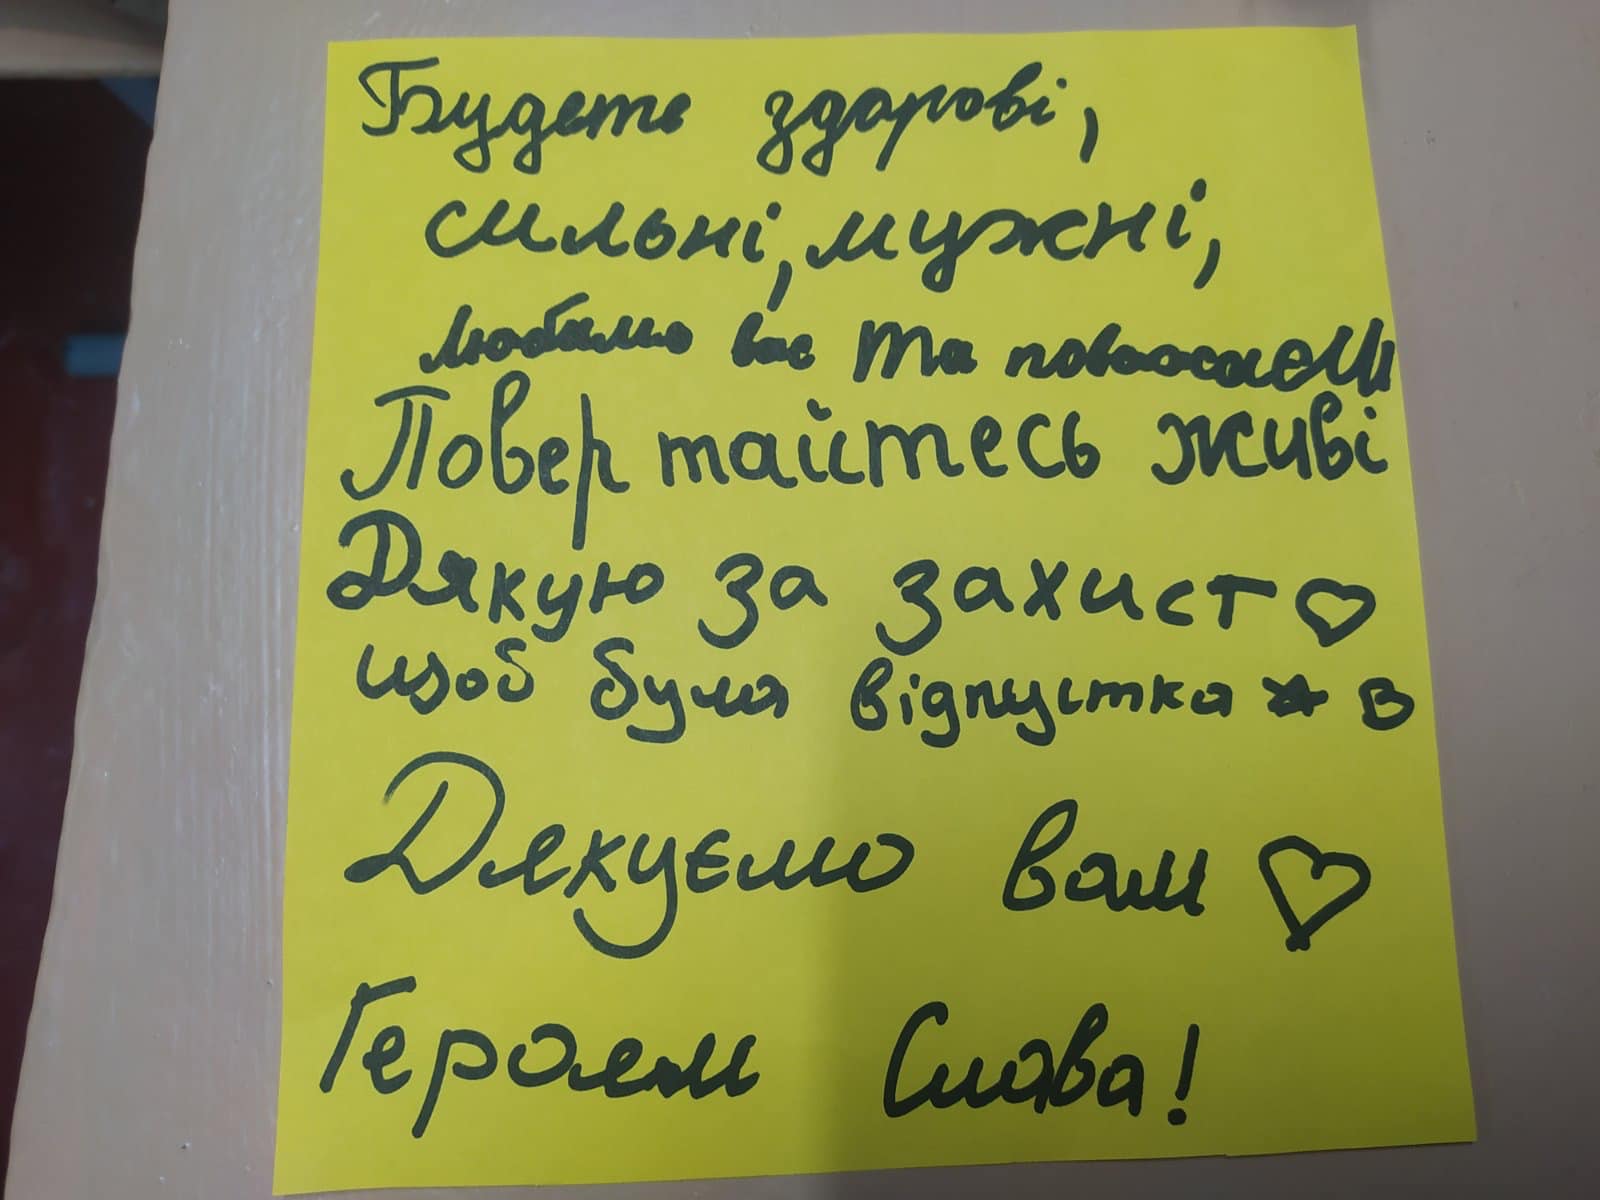 Будете здорові,
сильні, мужні,
любимо вас та поважаєм
Повертайтесь живі
Дякую за захист
щоб була відпустка
Дякуємо вам
Героям Слава!